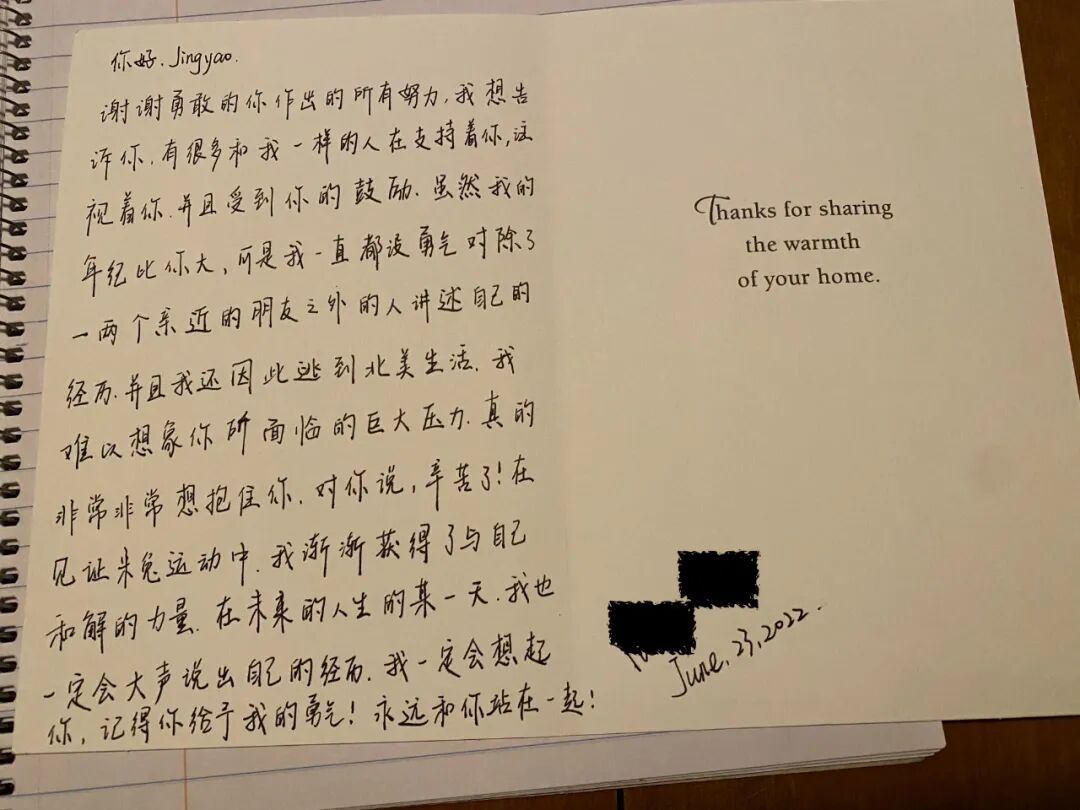 你好.Jingyao.
谢谢勇敢的你作出的所有努力,我想告
诉你.有很多和我一样的人在支持着你,注
视着你.并且受到你的鼓励.虽然我的
年纪比你大,可是我一直都没勇气对除了
一两个亲近的朋友之外的人讲述自己的
经历.并且我还因此逃到北美生活.我
难以想象你所面临的巨大压力.真的
非常非常想抱住你.对你说,辛苦了!在
见证米兔运动中.我渐渐获得了与自己
和解的力量.在未来的人生的某一天.我也
一定会大声说出自己的经历.我一定会想起
你,记得你给予我的勇气!永远和你站在一起!
Thanks for sharing
the warmth
of your home.
June.23,2022.